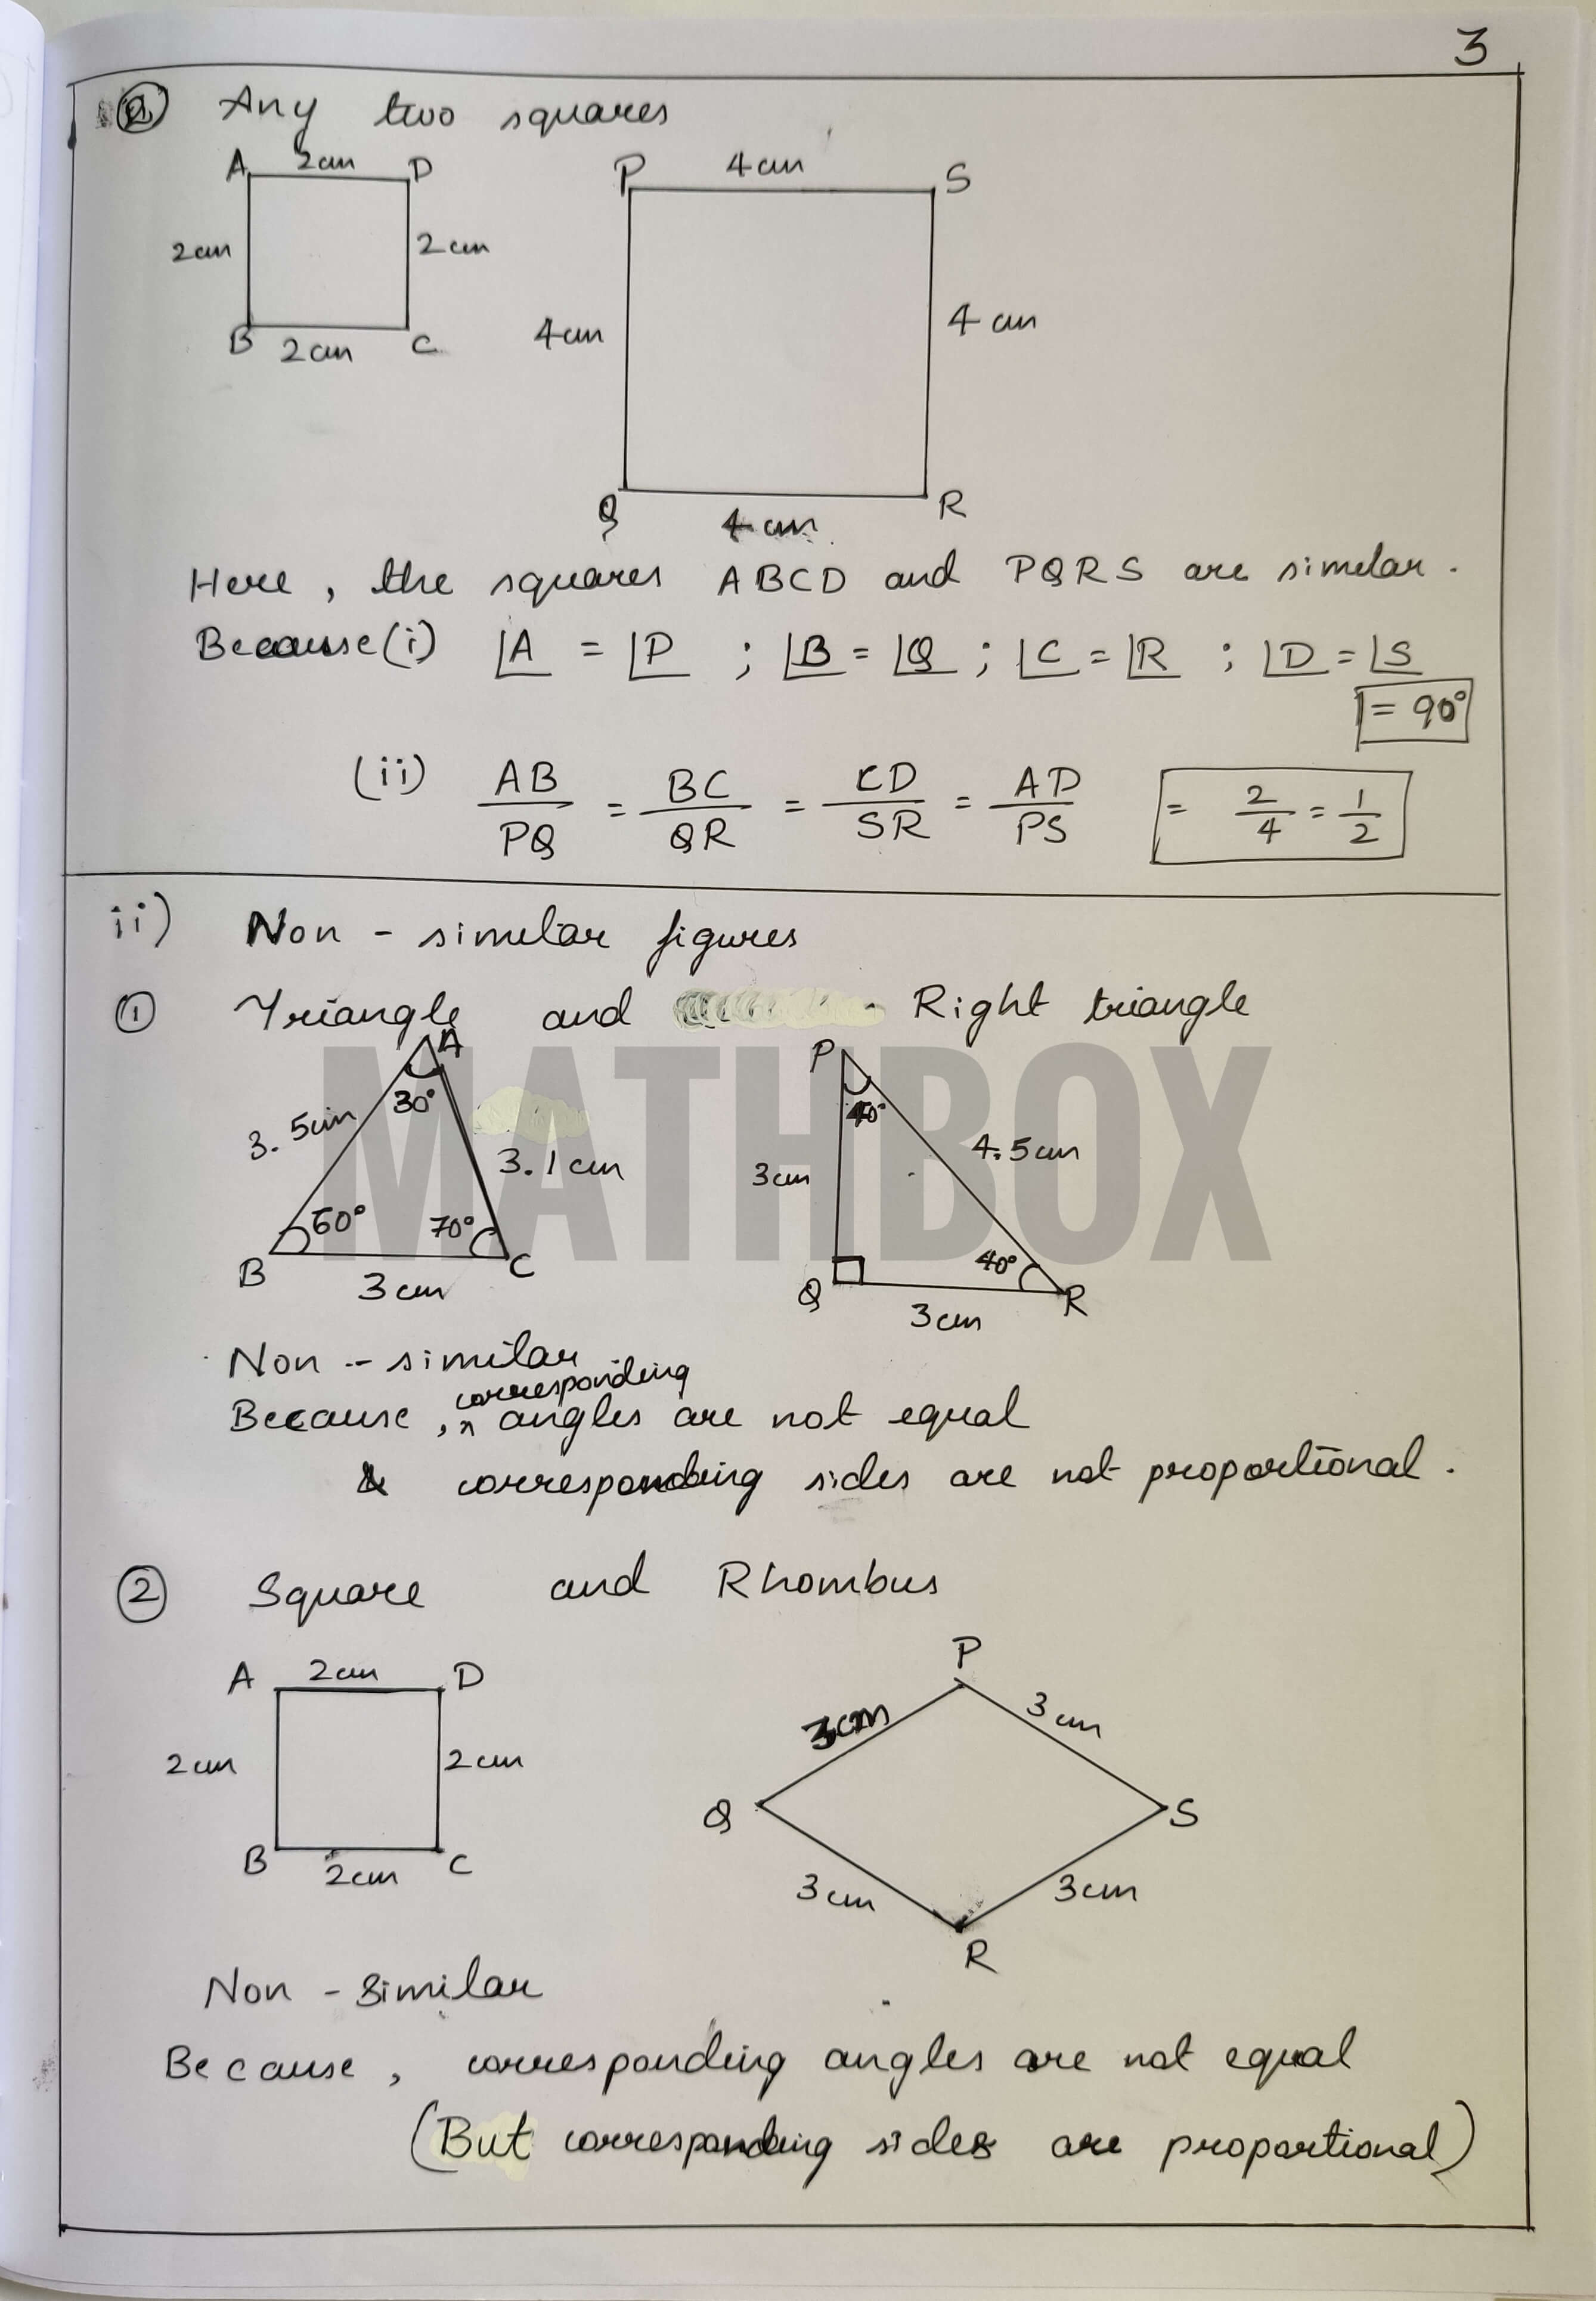 3
② Any two squares
A 2cm D
P 4cm S
2cm 2cm
4cm 4cm
B 2cm C
Q 4cm R
Here, the squares ABCD and PQRS are similar.
Because (i) ∠A = ∠P ; ∠B = ∠Q ; ∠C = ∠R ; ∠D = ∠S
= 90°
(ii) AB/PQ = BC/QR = CD/SR = AD/PS = 2/4 = 1/2
ii) Non - similar figures
① Triangle and Right triangle
A P
30°
3.5cm 3.1cm
3cm 4.5cm
60° 70°
40°
B 3cm C
Q 3cm R
MATHBOX
Non - similar
corresponding
Because, ^ angles are not equal
& corresponding sides are not proportional.
② Square and Rhombus
A 2cm D
P
3cm 3cm
2cm 2cm
Q S
B 2cm C
3cm 3cm
R
Non - similar
Because, corresponding angles are not equal
(But corresponding sides are proportional)